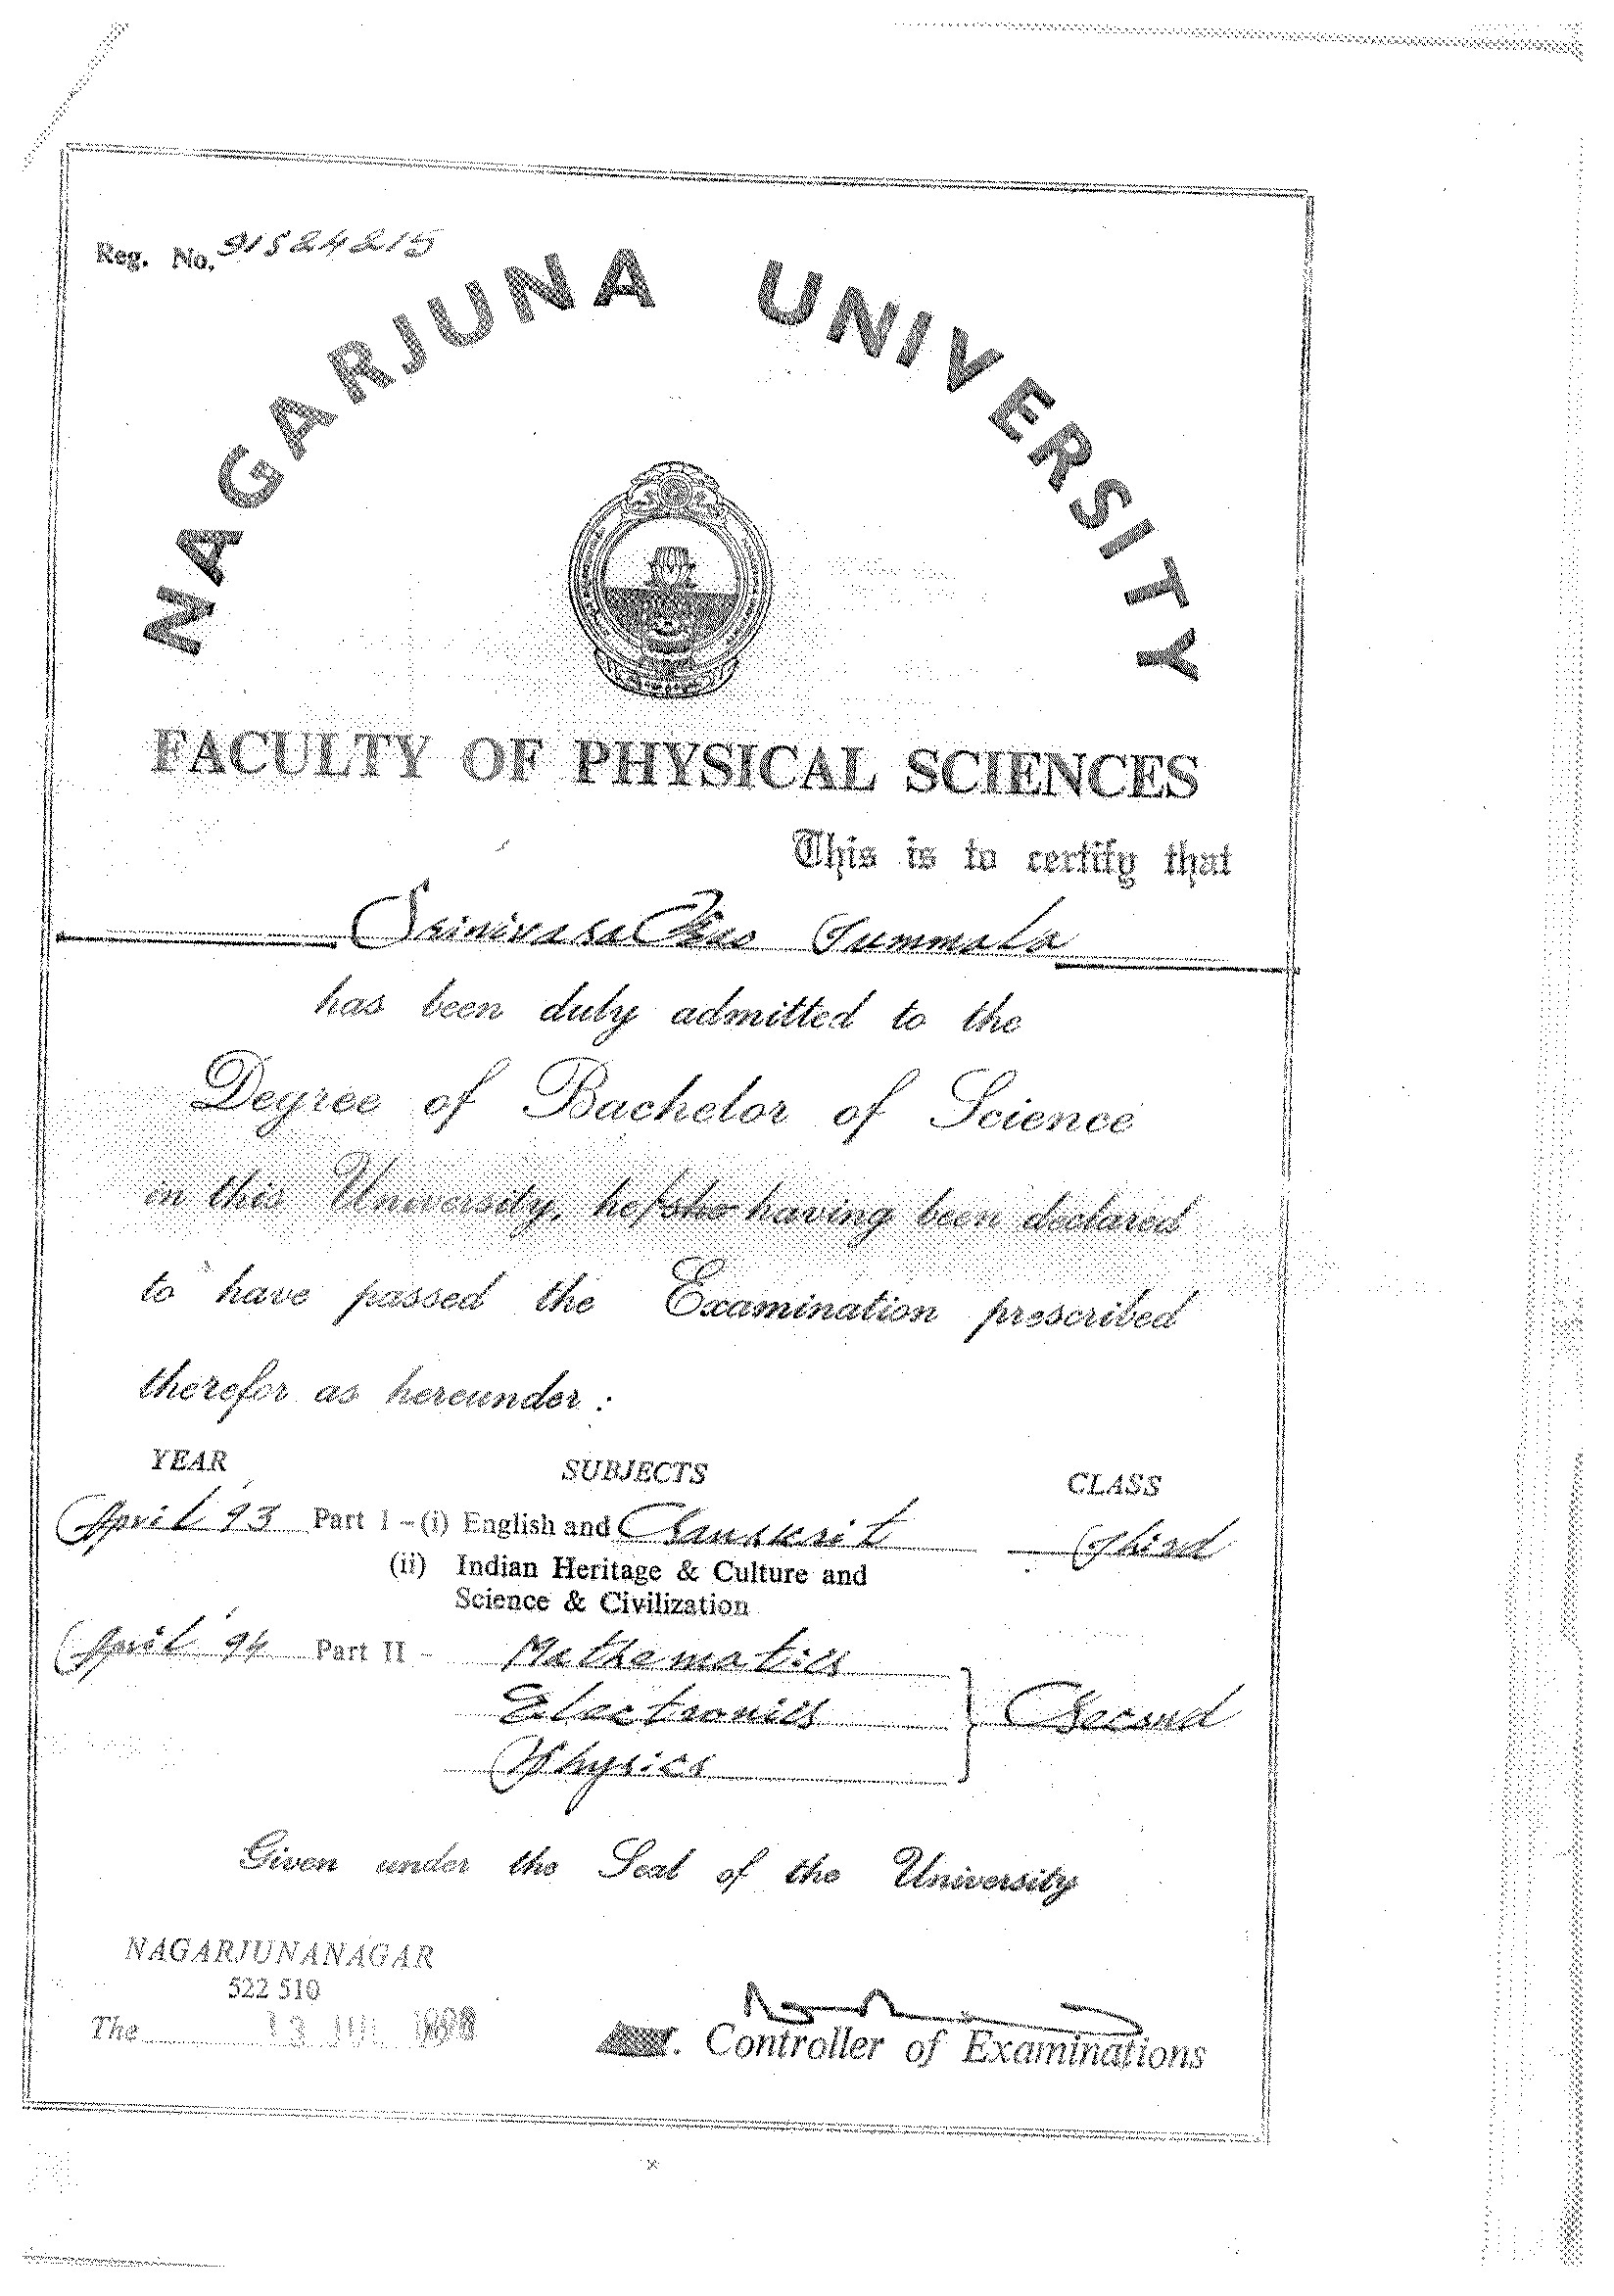 Reg. No. 91S24215
NAGARJUNA UNIVERSITY
FACULTY OF PHYSICAL SCIENCES
This is to certify that
Srinivasa Rao Tummala
has been duly admitted to the
Degree of Bachelor of Science
in this University, he/she having been declared
to have passed the Examination prescribed
therefor as hereunder :
YEAR SUBJECTS CLASS
April '93 Part I - (i) English and Sanskrit Third
(ii) Indian Heritage & Culture and
Science & Civilization
April '94 Part II - Mathematics
Electronics Second
Physics
Given under the Seal of the University
NAGARJUNANAGAR
522 510
The 13 JUL
Controller of Examinations